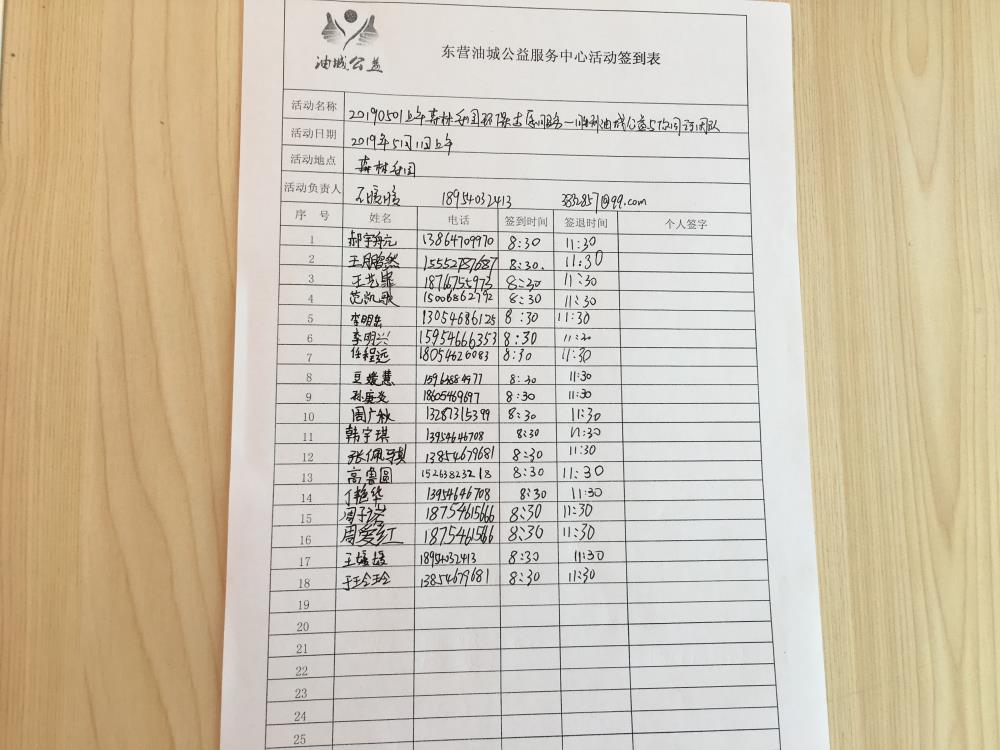 油城公益
东营油城公益服务中心活动签到表
活动名称 20190501上午森林公园环保志愿服务—胜利油城公益与你同行团队
活动日期 2019年5月1日上午
活动地点 森林公园
活动负责人 王媛媛 18954032413 3832857@qq.com
序 号 姓名 电话 签到时间 签退时间 个人签字
1 郝宇翔元 13864709970 8:30 11:30
2 王鹏然 15552787687 8:30. 11:30
3 王艺霏 18716755973 8:30 11:30
4 范凯歌 15006862792 8:30 11:30
5 李明岳 13054686125 8:30 11:30
6 李明兴 15954666353 8:30 11:30
7 任程远 18054626083 8:30 11:30
8 豆媛慧 8:30 11:30
9 孙庭炎 18605469697 8:30 11:30
10 周广秋 13287315399 8:30 11:30
11 韩宇琪 13954646708 8:30 11:30
12 张佩琪 13854679681 8:30 11:30
13 高鲁圆 15263823218 8:30 11:30
14 丁艳华 13954646708 8:30 11:30
15 周子涵 18754615666 8:30 11:30
16 周爱红 1875461566 8:30 11:30
17 王媛媛 18954032413 8:30 11:30
18 于玲玲 13854679681 8:30 11:30
19
20
21
22
23
24
25